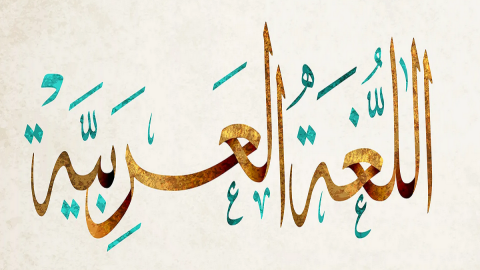 اللُّغَة العَرَبِيَّةُ